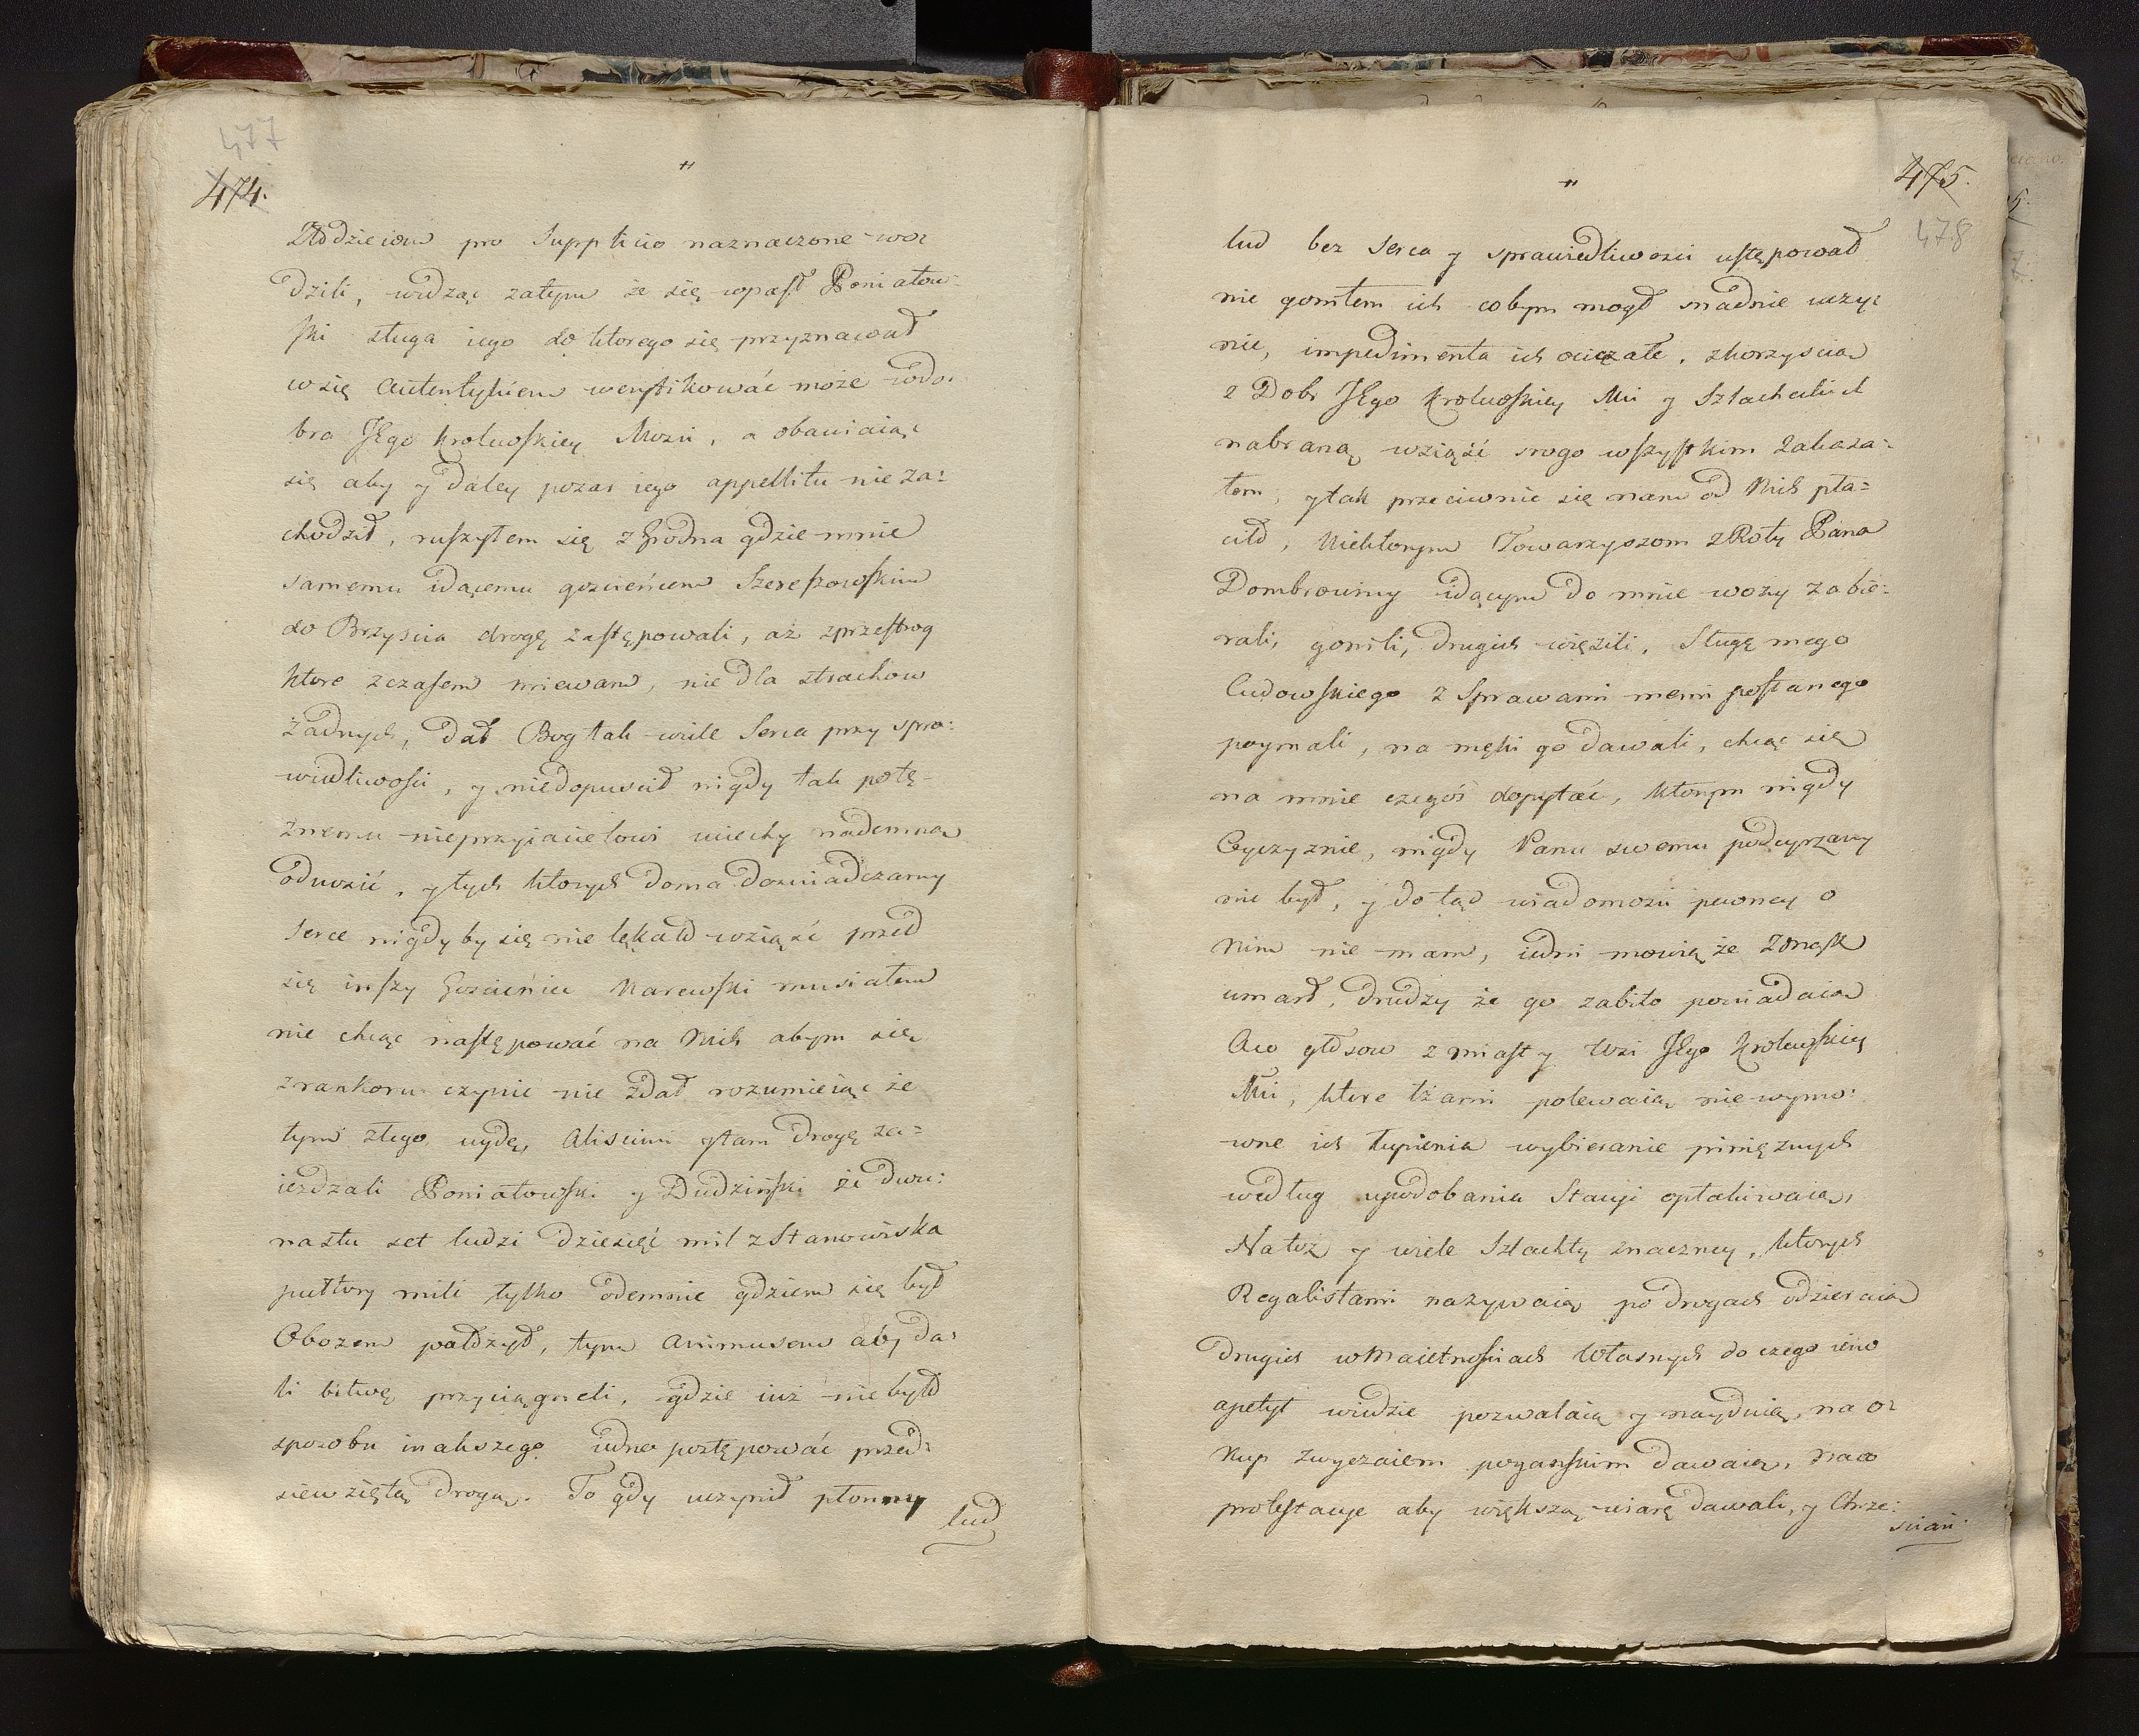 477
474.
"
Złodzieiom pro Supplicio naznaczone wo:
dzili, widząc zatym że się wpasł Poniatow:
ski sługa iego do ktorego się przyznawał
w się autentykiem weryfikować może w do:
bra JEgo Krolewskiey Mości, a obawiaiąc
się aby y daley pozar iego appetitu nie za:
chodził, ruszyłem się z Grodna gdzie mnie
samemu idącemu gościńcem Szereszowskim
do Brzyscia drogę zastępowali, aż z przestrog
ktore z czasem miewam, nie dla strachow
żadnych, dał Bog tak wiele serca przy spra:
wiedliwości, y niedopuscił nigdy tak potę-
żnemu nieprzyiacielowi uciechy nademną
odnosić, y tych ktorych doma doświadczamy
serce nigdy by się nie lękało wziąść przed
się inszy Gościniec Narewski musiałem
nie chcąc następować na Nich abym się
z rankoru czynić nie zdał rozumieiąc że
tym złego uydę, aliscim y tam drogę za=
ieżdzali Poniatowski y Dudziński ze dwu:
nastu set ludzi dziesięć mil z Stanowiska
pułtory mili tylko odemnie gdziem się był
Obozem położył, tym animusem aby da:
li bitwę przyciągneli, gdzie iuż nie było
sposobu inakszego iedno postępować przed:
siewziętą drogą. To gdy uczynił płonny
lud
475.
478
"
lud bez serca y sprawiedliwości ustępował
nie goniłem ich cobym mogł snadnie uczy:
nić, impedimenta ich ociężałe, z korzyscią
z Dobr JEgo Krolewskiey Mci y Szlacheckich
nabraną wziąść srogo wszystkim zakaza:
łem, y tak przeciwnie się nam od Nich pła=
ciło, Niektorym Towarzyszom z Roty Pana
Dombrowiny idącym do mnie wozy zabie:
rali, gonili, drugich więzili, Sługę mego
Cudowskiego z Sprawami memi posłanego
poymali, na męki go dawali, chcąc się
na mnie czegoś dopytać, ktorym nigdy
Oyczyznie, nigdy Panu swemu podeyrzany
nie był, y do tąd wiadomości pewney o
Nim nie mam, iedni mowią że z mąk
umarł, drudzy że go zabito powiadaią
A co głosow z miast y Wsi JEgo Krolewskiey
Mci, ktore łzami polewaią niewymo:
wne ich łupienia wybieranie pieniężnych
według upodobania Stacyi opłakiwaią,
Natoż y wiele Szlachty znaczney, ktorych
Regalistami nazywaią po drogach odzieraią
drugich w Maiętnościach Własnych do czego ieno
apetyt wiedzie pozwalaią y nayduią, na o:
kup zwyczaiem pogańskim dawaią, na co
protestacye aby większą wiarę dawali, y Chrze:
scian: